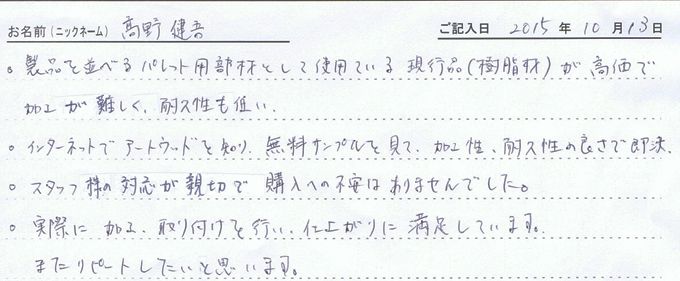 お名前(ニックネーム) 髙野 健吾 ご記入日 2015 年 10 月 13 日
。製品を並べるパレット用部材として使用している現行品(樹脂材)が高価で
加工が難しく、耐久性も低い.
。インターネットでアートウッドを知り、無料サンプルを見て、加工性、耐久性の良さで即決.
。スタッフ様の対応が親切で購入への不安はありませんでした。
。実際に加工、取り付けを行い、仕上がりに満足しています。
またリピートしたいと思います。